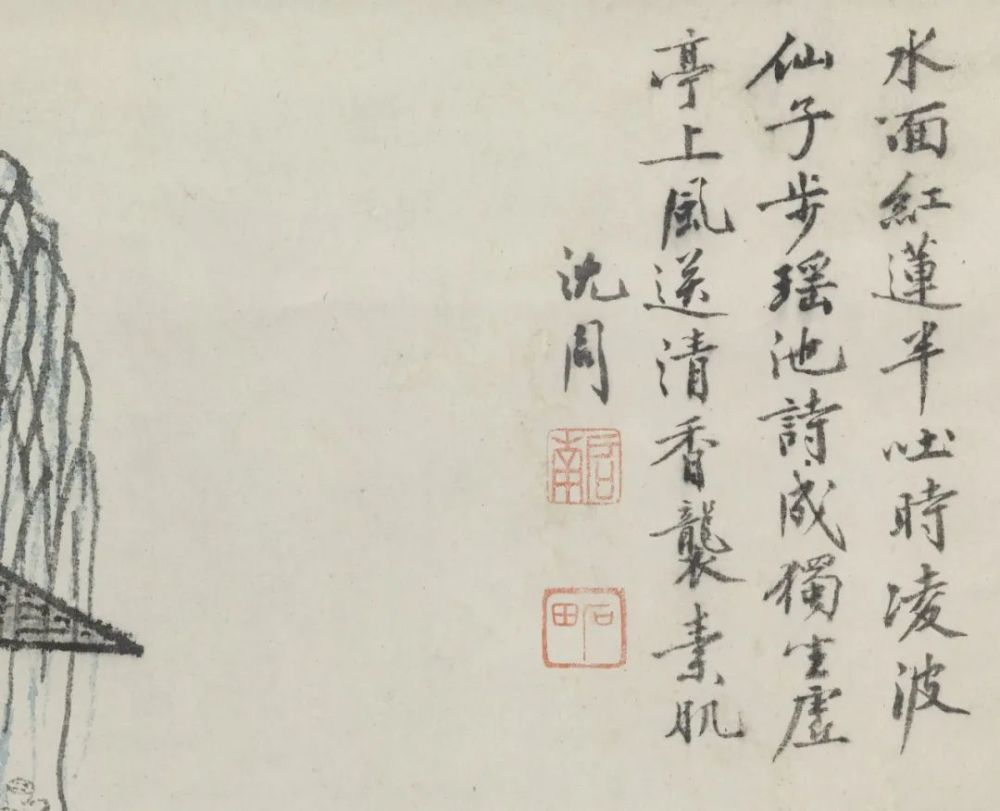 水面紅蓮半吐時凌波
仙子步瑤池詩成獨坐虛
亭上風送清香襲素肌
沈周
啟南
石田